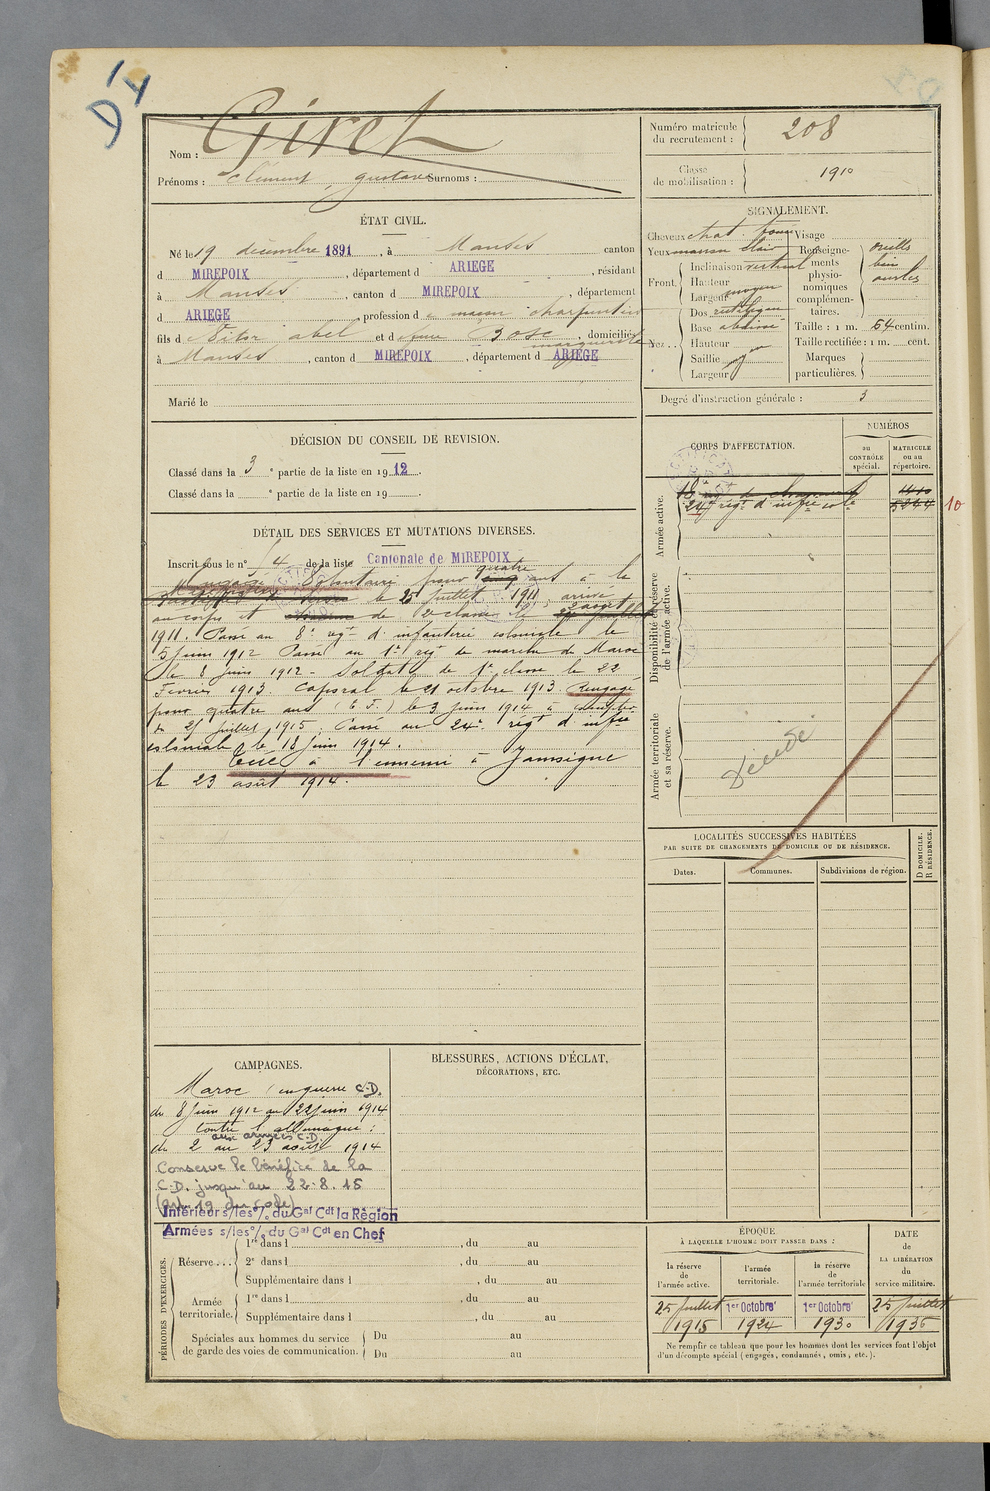 D4
Nom : Giret
Prénoms : Clément, gustave Surnoms :
Numéro matricule
du recrutement : 208
Classe
de mobilisation : 1910
ÉTAT CIVIL.
Né le 19 décembre 1891, à Manses canton
d MIREPOIX, département d ARIEGE, résidant
à Manses, canton d MIREPOIX, département
d ARIEGE, profession d maçon charpentier
fils d abel et d feue Bosc marguerite, domiciliés
à Manses, canton d MIREPOIX, département d ARIEGE
Marié le
SIGNALEMENT.
Cheveux chat. foncé
Yeux marron clair
Front. Inclinaison vertical
Hauteur
Largeur moyen
Nez . . Dos rectiligne
Base abaissé
Hauteur
Saillie
Largeur
Visage
Renseigne-
ments
physio-
nomiques
complémen-
taires.
oreilles
bien
ourlées
Taille : 1 m. 64 centim.
Taille rectifiée : 1 m. cent.
Marques
particulières.
Degré d'instruction générale : 3
DÉCISION DU CONSEIL DE REVISION.
Classé dans la 3e partie de la liste en 1912.
Classé dans la e partie de la liste en 19
DÉTAIL DES SERVICES ET MUTATIONS DIVERSES.
Inscrit sous le n° 14 de la liste Cantonale de MIREPOIX
Engagé Volontaire pour quatre ans à la
le 25 juillet 1911, arrivé
au corps et de 2e classe le 2 août
1911. Passé au 8e régt d'infanterie coloniale le
5 Juin 1912 Passé au 1er régt de marche du Maroc
le 8 juin 1912 - Soldat de 1e classe le 22
Février 1913. Caporal le 21 octobre 1913. Rengagé
pour quatre ans le 3 juin 1914 à compter
du 25 juillet 1915. Passé au 24e régt d'infie
coloniale le 18 juin 1914.
Tué à l'ennemi à Jamoigne
le 23 août 1914.
CORPS D'AFFECTATION.
NUMÉROS
au
CONTRÔLE
spécial.
MATRICULE
ou au
répertoire.
Armée active.
24e régt d'infie cole 5244
10
Disponibilité et réserve
de l'armée active.
Armée territoriale
et sa réserve.
Décédé
LOCALITÉS SUCCESSIVES HABITÉES
PAR SUITE DE CHANGEMENTS DE DOMICILE OU DE RÉSIDENCE.
Dates.
Communes.
Subdivisions de région.
D DOMICILE.
R RÉSIDENCE.
CAMPAGNES.
Maroc en guerre C.D.
du 8 Juin 1912 au 22 juin 1914
contre l'allemagne :
aux armées C.D.
du 2 au 23 août 1914
Conserve le bénéfice de la
C.D. jusqu'au 22-8-15
(art. 19 du code)
Intérieur s/les o/. du Gal Cdt la Région
Armées s/les o/. du Gal Cdt en Chef
BLESSURES, ACTIONS D'ÉCLAT,
DÉCORATIONS, ETC.
PÉRIODES D'EXERCICES.
Réserve . . .
1re dans l , du au
2e dans l , du au
Supplémentaire dans l , du au
Armée
territoriale.
1re dans l , du au
Supplémentaire dans l , du au
Spéciales aux hommes du service
de garde des voies de communication.
Du au
Du au
ÉPOQUE
À LAQUELLE L'HOMME DOIT PASSER DANS :
la réserve
de
l'armée active.
l'armée
territoriale.
la réserve
de
l'armée territoriale
DATE
de
LA LIBÉRATION
du
service militaire.
25 Juillet 1915
1er Octobre 1924
1er Octobre 1930
25 Juillet 1936
Ne remplir ce tableau que pour les hommes dont les services font l'objet
d'un décompte spécial (engagés, condamnés, omis, etc.).